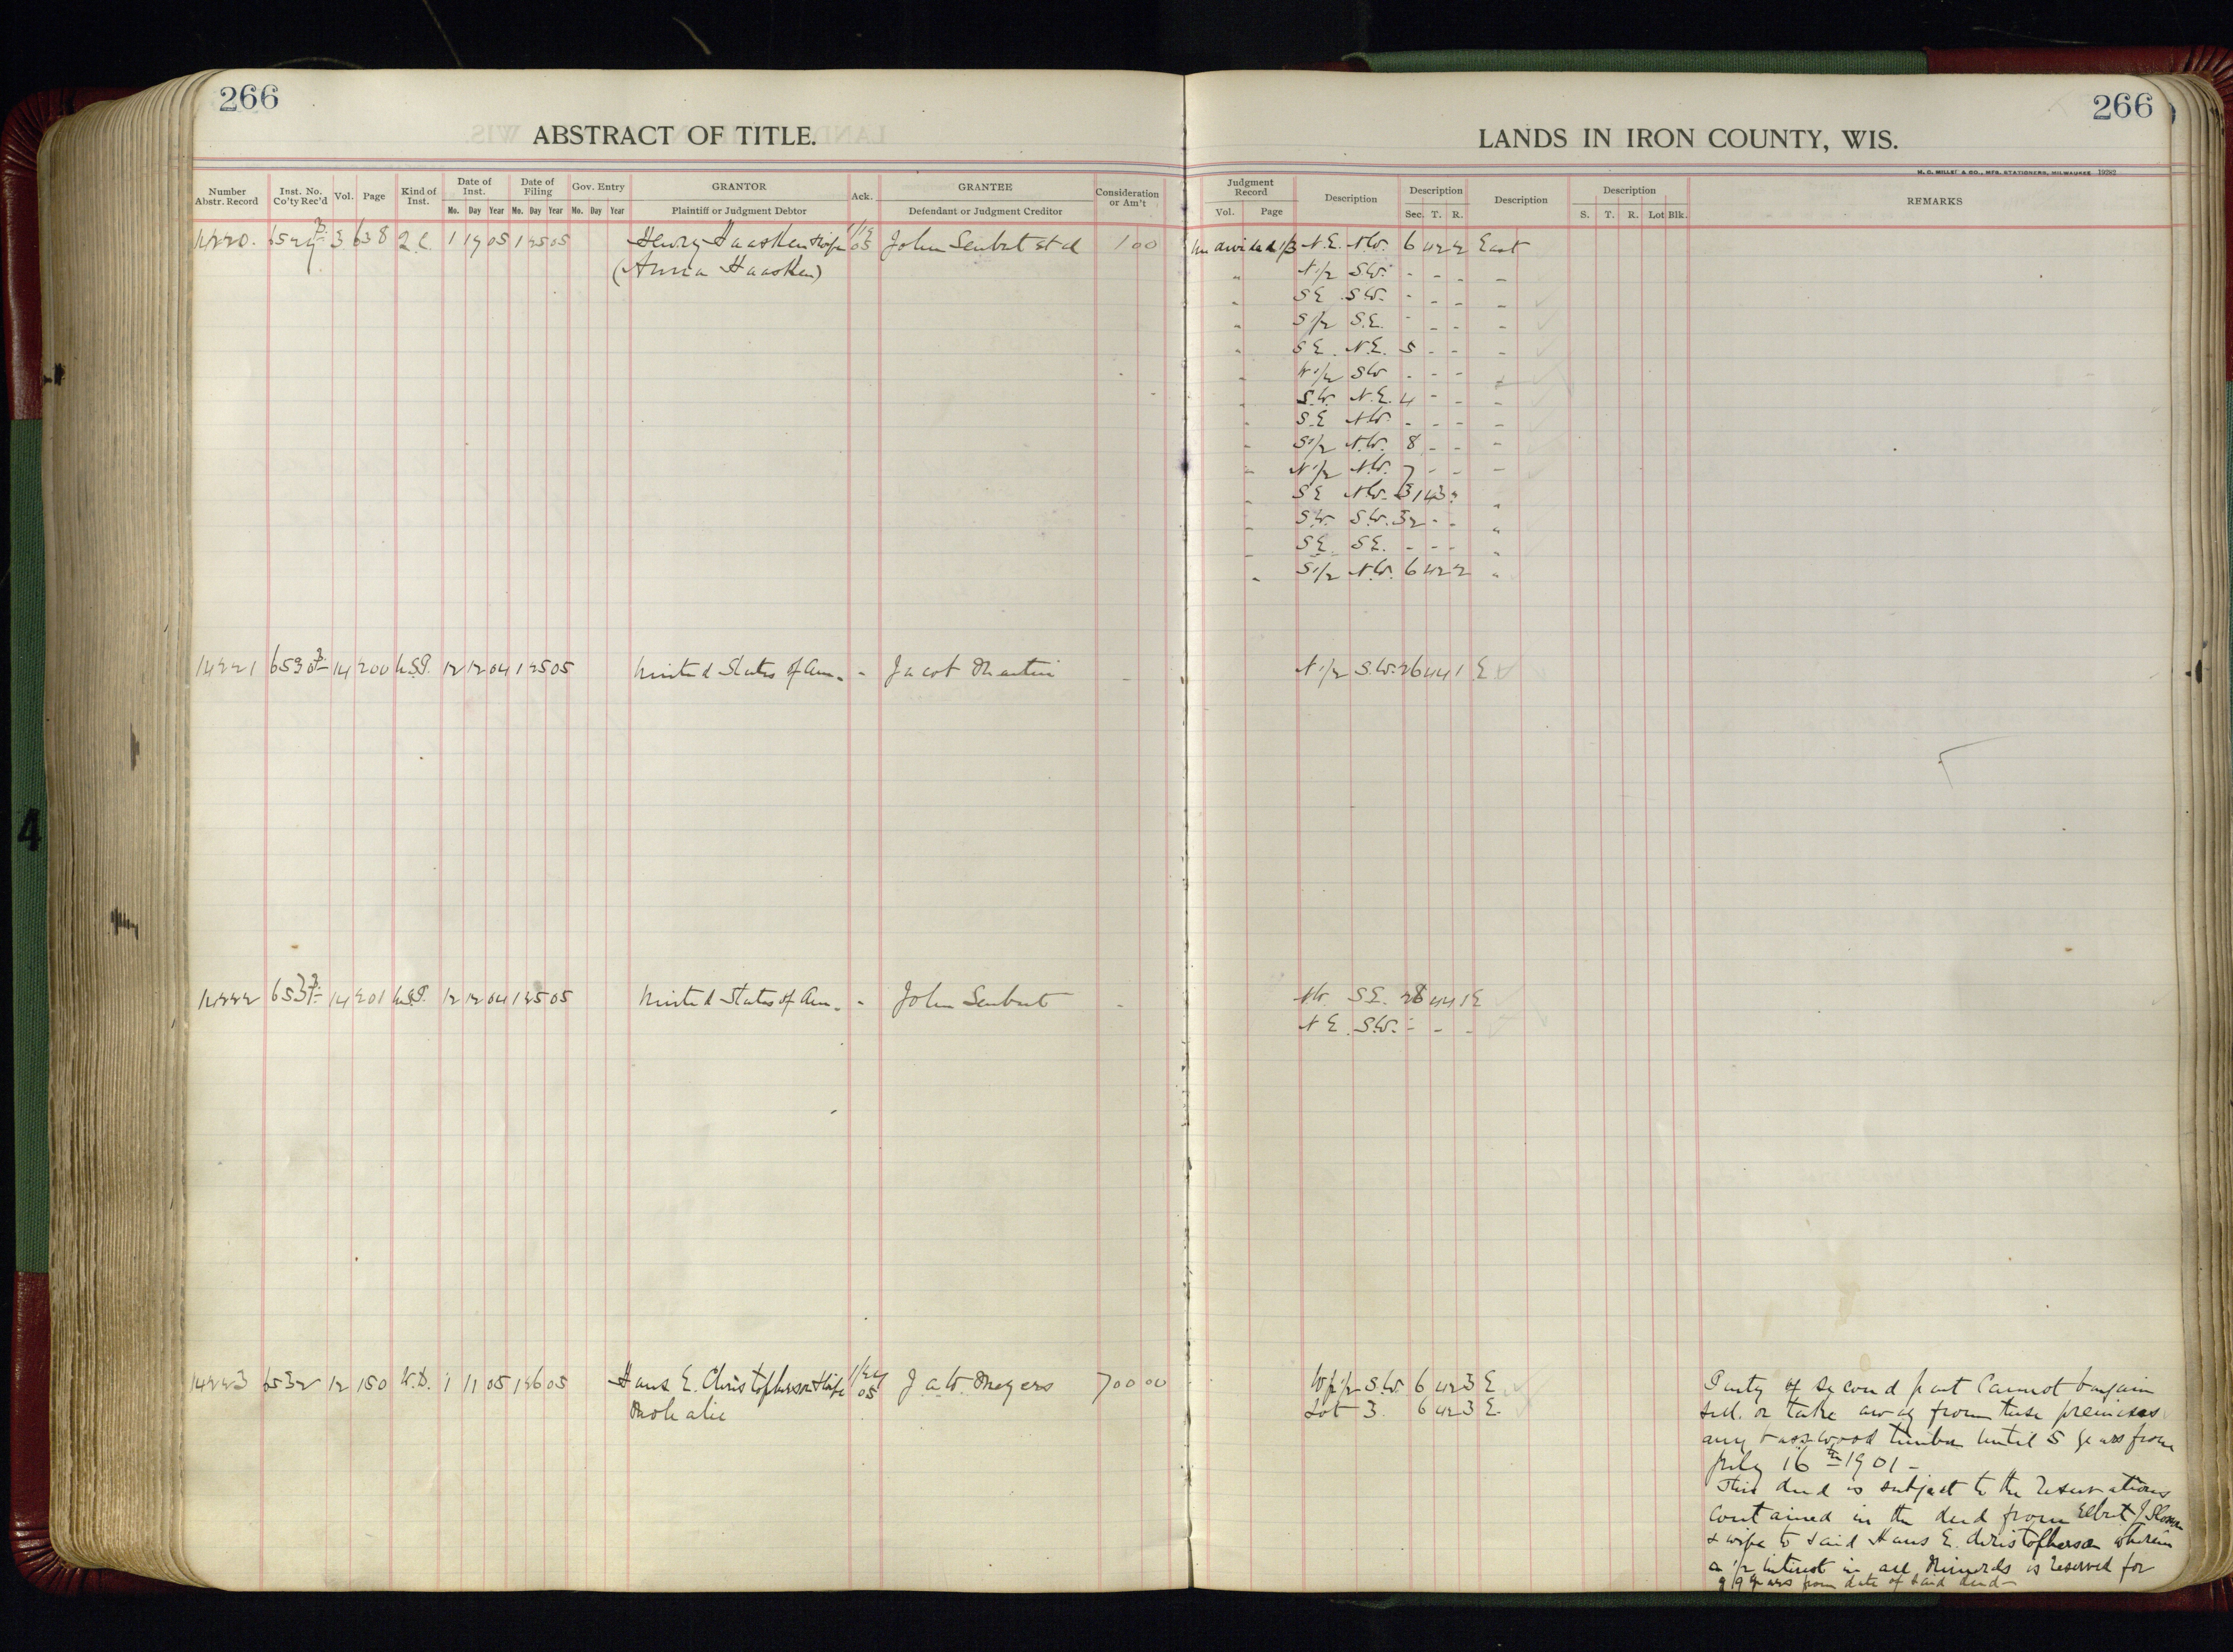 266
266
ABSTRACT OF TITLE.
LANDS IN IRON COUNTY, WIS.
H. C. MILLER & CO., MFG. STATIONERS, MILWAUKEE 19282
Number Abstr. Record Inst. No. Co'ty Rec'd Vol. Page Kind of Inst. Date of Inst. Mo. Day Year Date of Filing Mo. Day Year Gov. Entry Mo. Day Year GRANTOR Plaintiff or Judgment Debtor Ack. GRANTEE Defendant or Judgment Creditor Consideration or Am't
Judgment Record Vol. Page Description Description Sec. T. R. Description Description S. T. R. Lot Blk. REMARKS
14220. 6529 3 638 Q.C. 1 19 05 1 25 05 Henry Haasken & wife 1/19 05 John Seubert et al 1 00 Undivided 1/3 N.E. N.W. 6 42 2 East
(Anna Haasken) " N 1/2 S.W. - - - -
" S E S.W. - - - -
" S 1/2 S.E. - - - -
" S E N.E. 5 - - -
" W 1/2 S.W. - - - -
" S.W. N.E. 4 - - -
" S.E N.W. - - - -
" S 1/2 N.W. 8 - - -
" N 1/2 N.W. 7 - - -
" S E N.W. 31 43 " "
" S.W. S.W. 32 - - "
" S E S.E. - - - "
" S 1/2 N.W. 6 42 2 "
14221 6530 14 200 U.S.P. 12 12 04 1 25 05 United States of Am. - Jacob Martin - N 1/2 S.W. 26 44 1 E
14222 6531 14 201 U.S.P. 12 12 04 1 25 05 United States of Am. - John Seubert - N.W. S.E. 28 44 1 E
N E S.W. - - -
14223 6532 12 150 W.D. 1 11 05 1 26 05 Hans E. Christopherson & wife 1/24 05 J. A. W. Meyers 700 00 W 1/2 S.W. 6 42 3 E
Lot 3. 6 42 3 E.
Party of Second part Cannot bargain
sell. or take away from these premises
any basswood timber until 5 years from
July 16th 1901 -
This deed is subject to the reservations
Contained in the deed from Elbert J
& wife to said Hans E. Christopherson wherein
a 1/2 interest in all Minerals is reserved for
99 years from date of said deed -